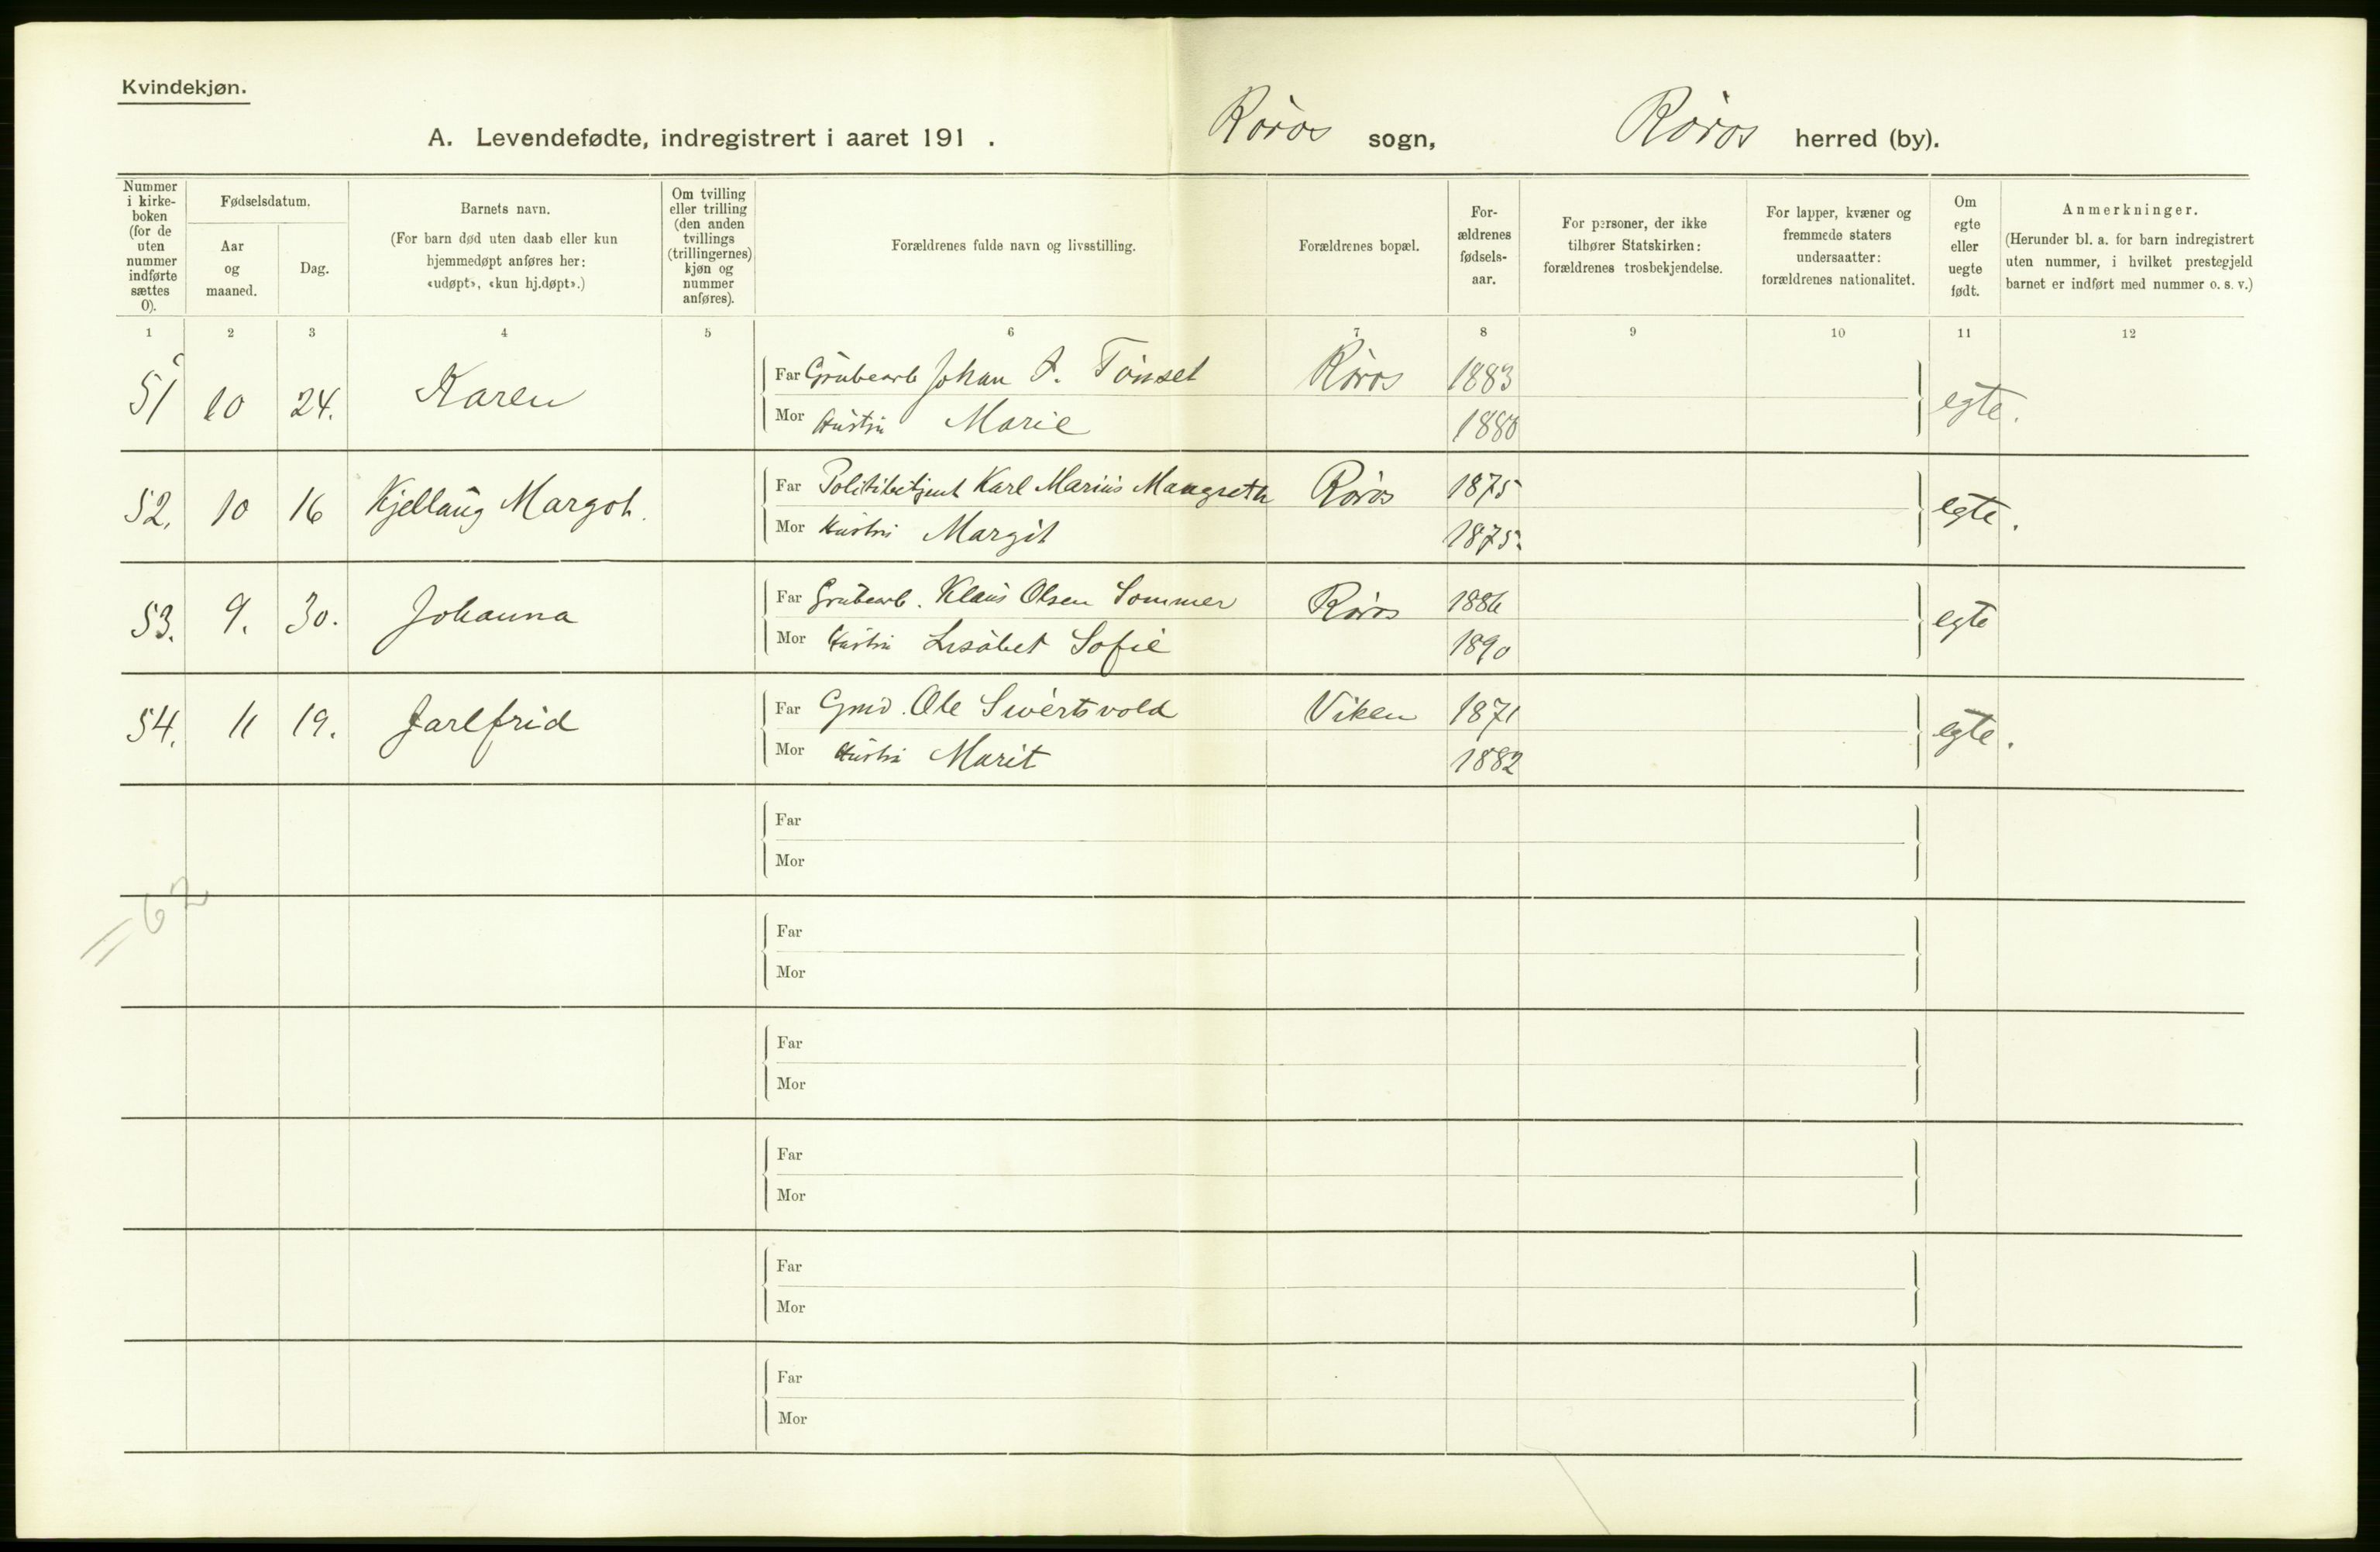 Kvindekjøn.
A. Levendefødte, indregistrert i aaret 191 . Røros sogn, Røros herred (by).
Nummer i kirke- boken (for de uten nummer indførte sættes 0).
Fødselsdatum.
Aar og maaned.
Dag.
Barnets navn.
(For barn død uten daab eller kun hjemmedøpt anføres her: «udøpt», «kun hj.døpt».)
Om tvilling eller trilling (den anden tvillings (trillingernes) kjøn og nummer anføres).
Forældrenes fulde navn og livsstilling.
Forældrenes bopæl.
For- ældrenes fødsels- aar.
For personer, der ikke tilhører Statskirken: forældrenes trosbekjendelse.
For lapper, kvæner og fremmede staters undersaatter: forældrenes nationalitet.
Om egte eller uegte født.
Anmerkninger.
(Herunder bl. a. for barn indregistrert uten nummer, i hvilket prestegjeld barnet er indført med nummer o. s. v.)
1 2 3 4 5 6 7 8 9 10 11 12
51 10 24. Karen Far Grubearb Johan Tønset Røros 1883 egte.
Mor Hustru Marie 1880
52. 10 16 Kjellaug Margot. Far Politibetjent Karl Marius Mangseth Røros 1875 egte.
Mor Hustru Margit 1875.
53. 9. 30. Johanna Far Grubearb. Klaus Olsen Sommer Røros 1886 egte
Mor Hustru Lisabet Sofie 1890
54. 11 19. Jarlfrid Far Gmd. Ole Sivertsvold Viken 1871 egte.
Mor Hustru Marit 1882
Far
Mor
= 62
Far
Mor
Far
Mor
Far
Mor
Far
Mor
Far
Mor